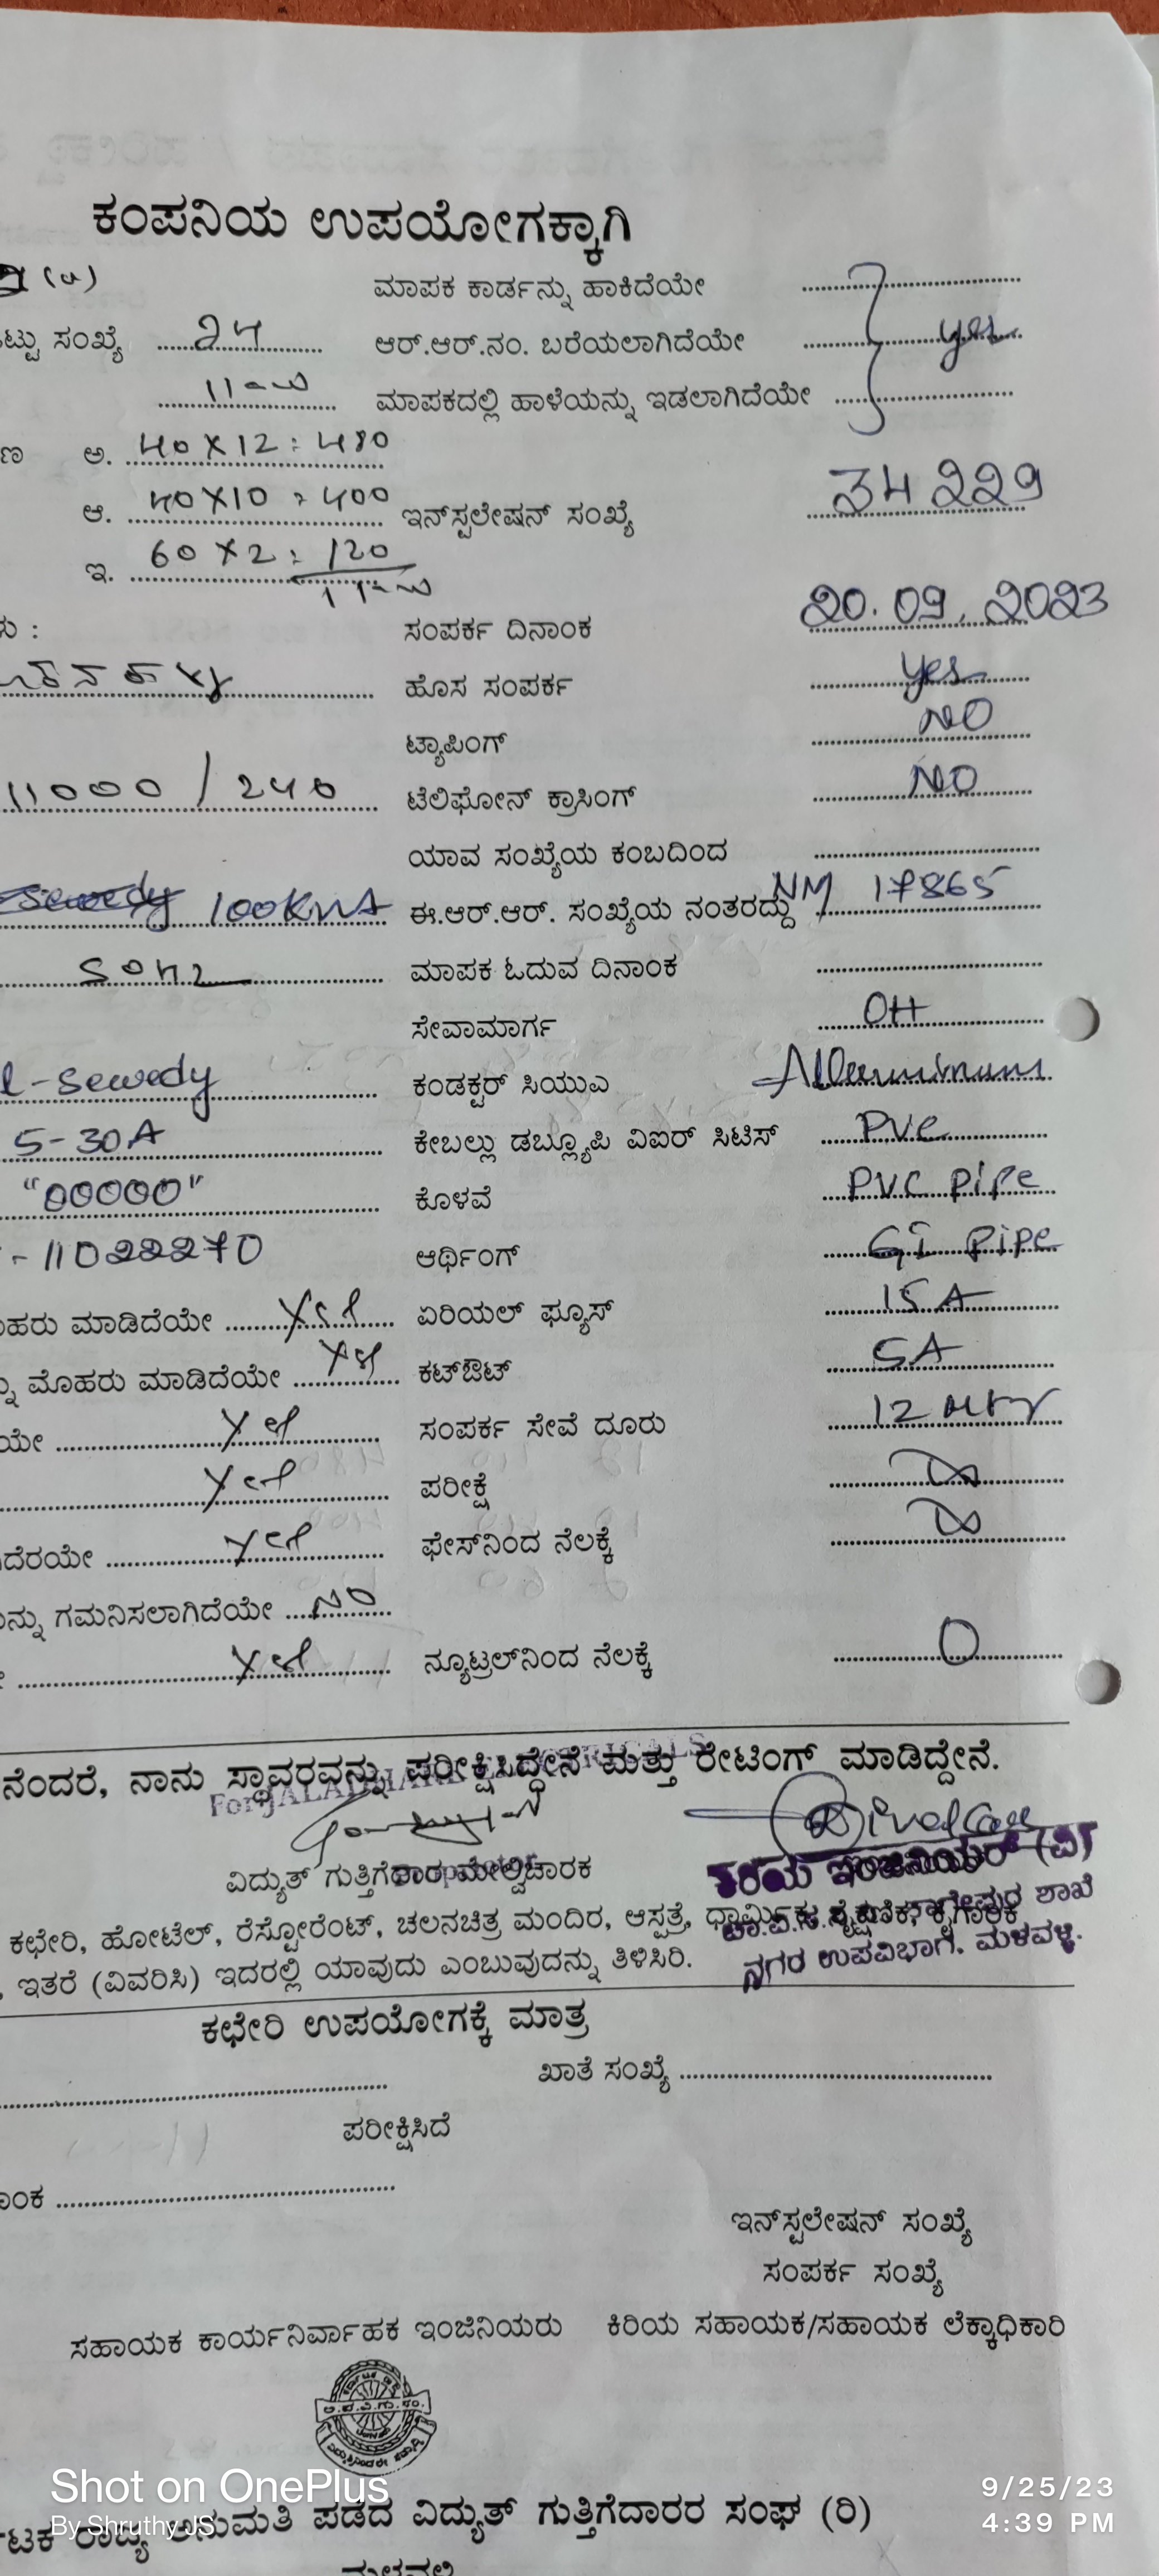 ಕಂಪನಿಯ ಉಪಯೋಗಕ್ಕಾಗಿ
ಮಾಪಕ ಕಾರ್ಡನ್ನು ಹಾಕಿದೆಯೇ
ಟ್ಟು ಸಂಖ್ಯೆ 24 ಆರ್.ಆರ್.ನಂ. ಬರೆಯಲಾಗಿದೆಯೇ yes
ಮಾಪಕದಲ್ಲಿ ಹಾಳೆಯನ್ನು ಇಡಲಾಗಿದೆಯೇ
ಅ. 40 X 12 : 480
ಆ. 40 X 10 : 400 ಇನ್‌ಸ್ಟಲೇಷನ್ ಸಂಖ್ಯೆ 34229
ಇ. 60 X 2 : 120
ಸಂಪರ್ಕ ದಿನಾಂಕ 20.09.2023
ಹೊಸ ಸಂಪರ್ಕ yes
ಟ್ಯಾಪಿಂಗ್ NO
11000 / 240 ಟೆಲಿಫೋನ್ ಕ್ರಾಸಿಂಗ್ NO
ಯಾವ ಸಂಖ್ಯೆಯ ಕಂಬದಿಂದ
100KVA ಈ.ಆರ್.ಆರ್. ಸಂಖ್ಯೆಯ ನಂತರದ್ದು NM 17865
50Hz ಮಾಪಕ ಓದುವ ದಿನಾಂಕ
ಸೇವಾಮಾರ್ಗ OH
l-sewedy ಕಂಡಕ್ಟರ್ ಸಿಯುಎ
5-30A ಕೇಬಲ್ಲು ಡಬ್ಲ್ಯೂಪಿ ವಿಐರ್ ಸಿಟಿಸ್ PVC
"00000" ಕೊಳವೆ PVC Pipe
-11022270 ಆರ್ಥಿಂಗ್ GI Pipe
ಹರು ಮಾಡಿದೆಯೇ Yes ಏರಿಯಲ್ ಫ್ಯೂಸ್ 15A
ನ್ನು ಮೊಹರು ಮಾಡಿದೆಯೇ Yes ಕಟ್‌ಔಟ್ 5A
ಯೇ Yes ಸಂಪರ್ಕ ಸೇವೆ ದೂರು 12 Mtr
Yes ಪರೀಕ್ಷೆ
ದೆರಯೇ Yes ಫೇಸ್‌ನಿಂದ ನೆಲಕ್ಕೆ
ನ್ನು ಗಮನಿಸಲಾಗಿದೆಯೇ NO
Yes ನ್ಯೂಟ್ರಲ್‌ನಿಂದ ನೆಲಕ್ಕೆ 0
ನೆಂದರೆ, ನಾನು ಸ್ಥಾವರವನ್ನು ಪರೀಕ್ಷಿಸಿದ್ದೇನೆ ಮತ್ತು ರೇಟಿಂಗ್ ಮಾಡಿದ್ದೇನೆ.
ವಿದ್ಯುತ್ ಗುತ್ತಿಗೆದಾರ ಮೇಲ್ವಿಚಾರಕ
ಕಿರಿಯ ಇಂಜಿನಿಯರ್ (ವಿ)
ಕಛೇರಿ, ಹೋಟೆಲ್, ರೆಸ್ಟೋರೆಂಟ್, ಚಲನಚಿತ್ರ ಮಂದಿರ, ಆಸ್ಪತ್ರೆ, ಧಾರ್ಮಿಕ, ಶೈಕ್ಷಣಿಕ, ಕೈಗಾರಿಕೆ
, ಇತರೆ (ವಿವರಿಸಿ) ಇದರಲ್ಲಿ ಯಾವುದು ಎಂಬುವುದನ್ನು ತಿಳಿಸಿರಿ.
ನಗರ ಉಪವಿಭಾಗ. ಮಳವಳ್ಳಿ.
ಕಛೇರಿ ಉಪಯೋಗಕ್ಕೆ ಮಾತ್ರ
ಖಾತೆ ಸಂಖ್ಯೆ
ಪರೀಕ್ಷಿಸಿದೆ
ಾಂಕ
ಇನ್‌ಸ್ಟಲೇಷನ್ ಸಂಖ್ಯೆ
ಸಂಪರ್ಕ ಸಂಖ್ಯೆ
ಸಹಾಯಕ ಕಾರ್ಯನಿರ್ವಾಹಕ ಇಂಜಿನಿಯರು ಕಿರಿಯ ಸಹಾಯಕ/ಸಹಾಯಕ ಲೆಕ್ಕಾಧಿಕಾರಿ
Shot on OnePlus
By Shruthy JS
9/25/23
4:39 PM
ಟಕ ರಾಜ್ಯ ಅನುಮತಿ ಪಡೆದ ವಿದ್ಯುತ್ ಗುತ್ತಿಗೆದಾರರ ಸಂಘ (ರಿ)